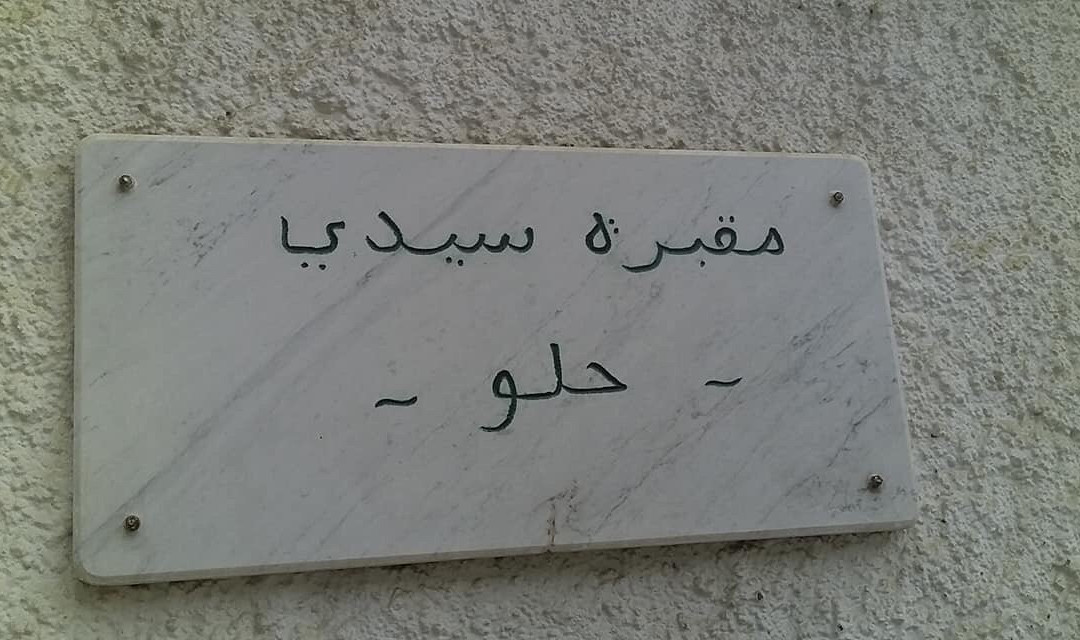 مقبرة سيدي
- حلو -